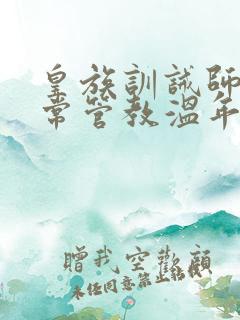 皇族訓誡師日
常管教溫年
贈我空歡顏
未任同意禁止转载